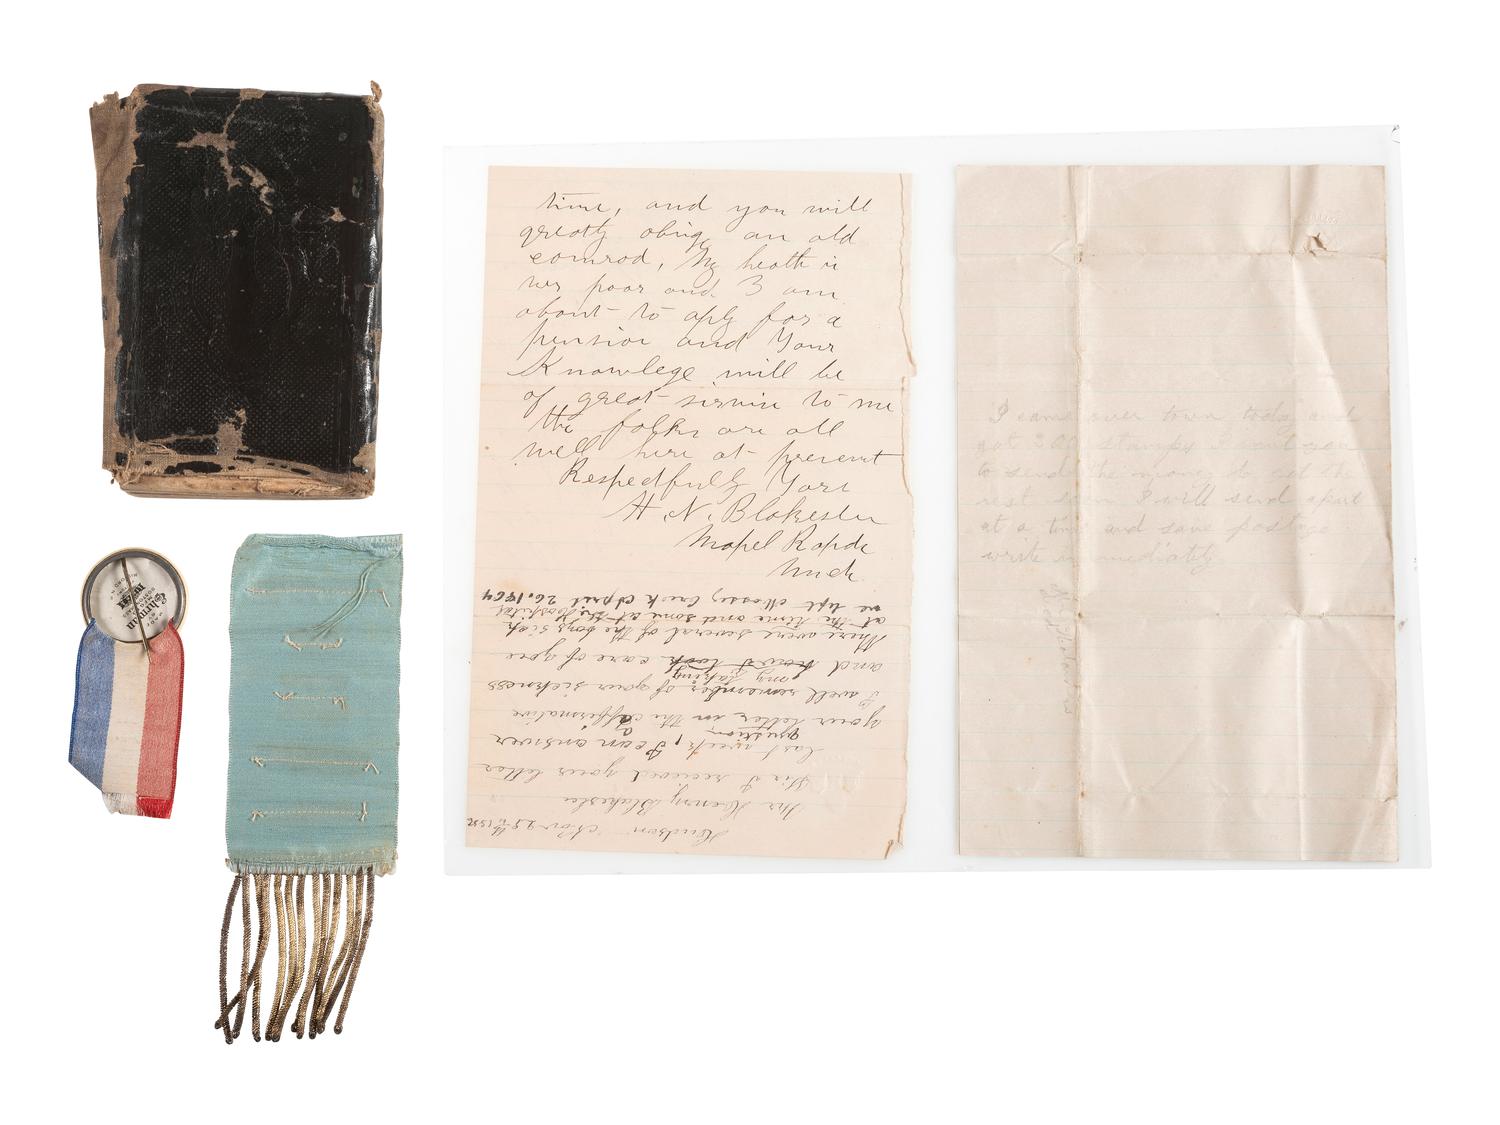 time, and you will
greatly obige an old
comrod, My heolth is
very poor and I am
about to aply for a
pension and Your
Knowlege will be
of great sirvice to me
the folks are all
well here at present
Respectfully Yors
H. N. Blakeslee
Mapel Rapids
Mich
Hudson Nov 25th
Mr Henry Blakeslee
Sir I received your letter
last week, I can answer
question
your letter in the affirmative
I well remember of your sickness
my taking
and took care of you
There were several of the boys sick
at the time and some at the Hospital
we left Mossey Creek April 26. 1864
I came over town today and
got 200 stamps I got you
to send the money to get the
rest soon I will send apart
at a time and save postage
write immediately
Ehrman
MFG. CO.
BOSTON
MILFORD